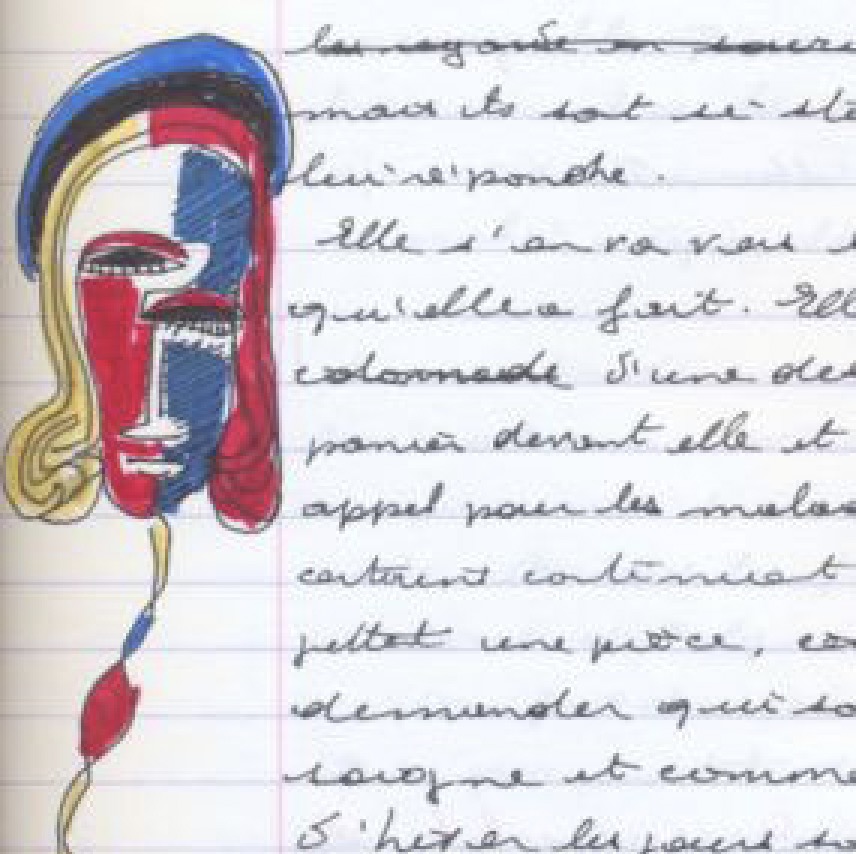 les regarde en souri
mais ils sont si
lui répondre.
Elle s'en va vers
qu'elle a fait. Ell
colonnade d'une des
panier devant elle et
appel pour les malad
certains continuent
jettent une pièce,
demander qui
soigne et comme
les jours so